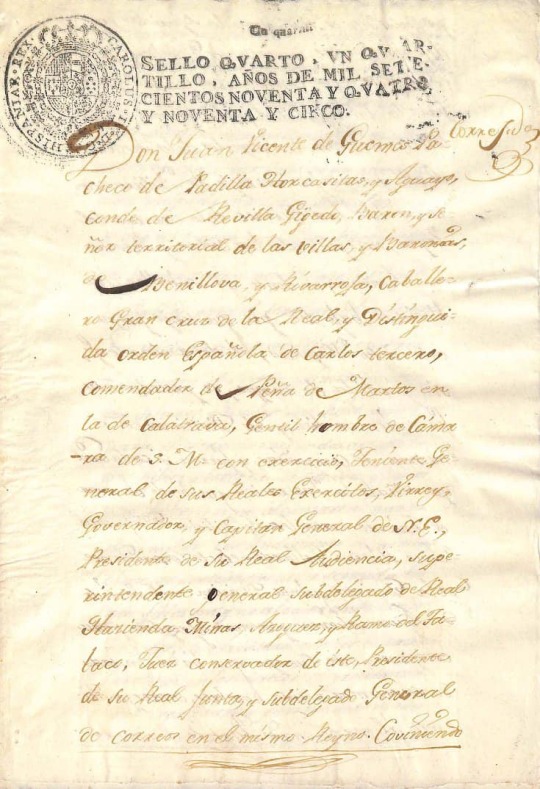 Un quartill
CAROLUS IV D G HISPANIAR REX
SELLO QVARTO, VN QVAR-
TILLO, AÑOS DE MIL SETE-
CIENTOS NOVENTA Y QVATRO
Y NOVENTA Y CINCO.
Corregido
Don Juan Vicente de Guemes Pa-
checo de Padilla Horcasitas, y Aguayo,
conde de Revilla Gigedo, Baron, y Se-
ñor territorial de las Villas, y Baronias,
de Benillova, y Rivarroja, Caballe-
ro Gran cruz de la Real, y Distingui-
da orden Española de Carlos tercero,
comendador de Peña de Martos en
la de Calatrava, Gentil hombre de Cama-
ra de S. M. con exercicio, Teniente Ge-
neral de sus Reales Exercitos, Virrey,
Governador, y Capitan General de N. E.,
Presidente de su Real Audiencia, supe-
rintendente general subdelegado de Real
Hazienda, Minas, Azoguez, y Ramo del Ta-
baco, Juez conservador de éste, Presidente
de su Real Junta, y subdelegado General
de correos en el mismo Reyno. Coviniendo